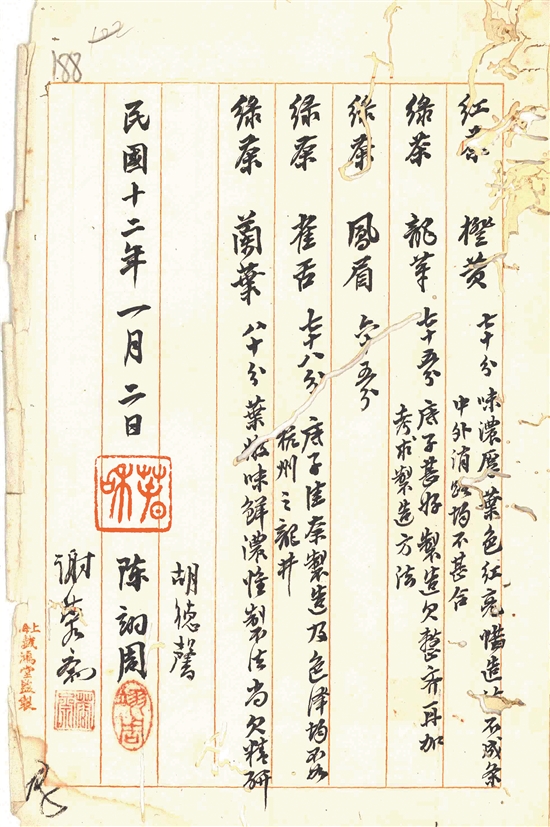 188
红茶 橙黄 七十分 味濃厚葉色红亮惜造法不成条
中外消路均不甚合
綠茶 龍芽 七十五分 底子甚好製造欠整齐再加
考求製造方法
綠茶 鳳眉 六十五分
綠茶 雀舌 七十八分 底子佳奈製造及色澤均不如
杭州之龍井
綠茶 蘭葉 八十分 葉 味鮮濃惟制法尚欠精研
胡德馨
民國十二年一月二日 陈翊周
謝 斋
上 鴻堂監製